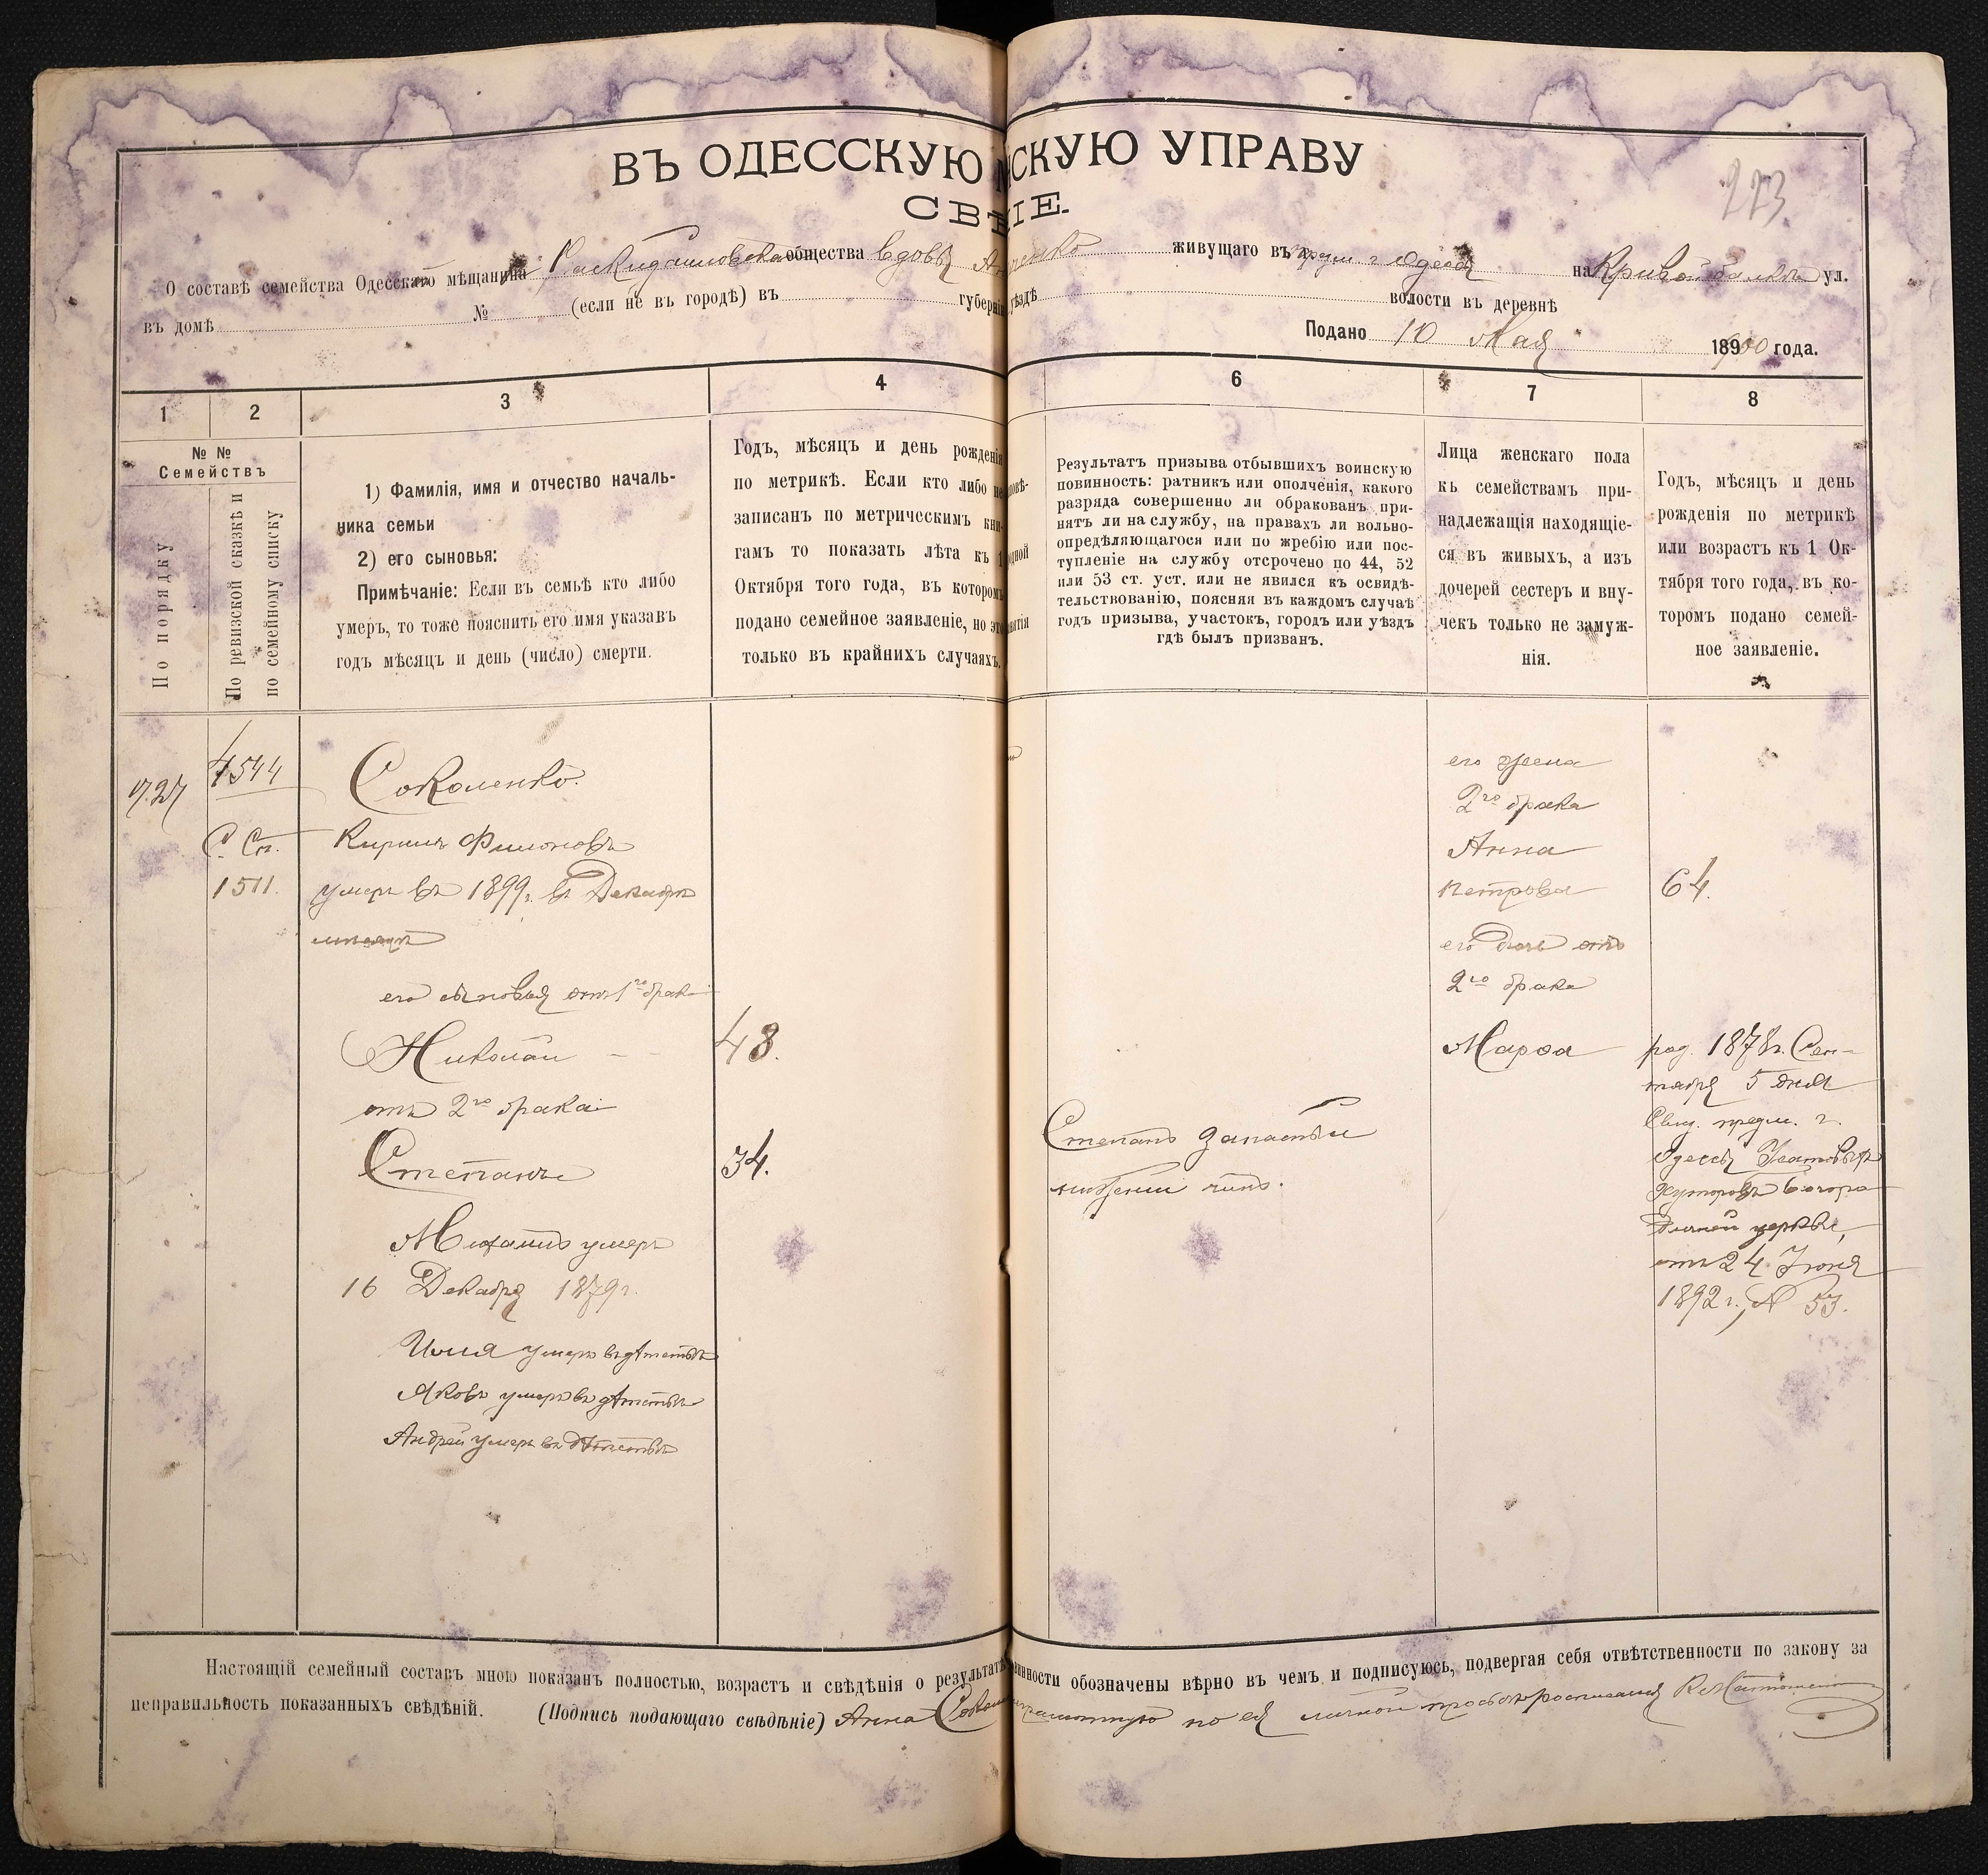 ВЪ ОДЕССКУЮ М СКУЮ УПРАВУ
СВѢ ІЕ.
223
О составѣ семейства Одесскаго мѣщанина Раскидайловскаго общества вдовы Ан ленко живущаго въ предм. г. Одессы на Кривой балкѣ ул.
въ домѣ № (если не въ городѣ) въ губерніи уѣздѣ волости въ деревнѣ
Подано 10 Мая 1900 года.
1 2 3 4 6 7 8
№ №
Семействъ
По порядку
По ревизской сказкѣ и
по семейному списку
1) Фамилія, имя и отчество началь-
ника семьи
2) его сыновья:
Примѣчаніе: Если въ семьѣ кто либо
умеръ, то тоже пояснить его имя указавъ
годъ мѣсяцъ и день (число) смерти.
Годъ, мѣсяцъ и день рожденія
по метрикѣ. Если кто либо не
записанъ по метрическимъ кни-
гамъ то показать лѣта къ 1
Октября того года, въ которомъ
подано семейное заявленіе, но это
только въ крайнихъ случаяхъ.
Результатъ призыва отбывшихъ воинскую
повинность: ратникъ или ополченія, какого
разряда совершенно ли обракованъ при-
нятъ ли на службу, на правахъ ли вольно-
опредѣляющагося или по жребію или пос-
тупленіе на службу отсрочено по 44, 52
или 53 ст. уст. или не явился къ освидѣ-
тельствованію, поясняя въ каждомъ случаѣ
годъ призыва, участокъ, городъ или уѣздъ
гдѣ былъ призванъ.
Лица женскаго пола
къ семействамъ при-
надлежащія находящіе-
ся въ живыхъ, а изъ
дочерей сестеръ и вну-
чекъ только не замуж-
нія.
Годъ, мѣсяцъ и день
рожденія по метрикѣ
или возрастъ къ 1 Ок-
тября того года, въ ко-
торомъ подано семей-
ное заявленіе.
927
4544
С. Сп.
1511.
Соколенко.
Кирилъ Филоновъ
умеръ въ 1899 г. въ Декабрѣ
мѣсяцѣ
его сыновья отъ 1го брака
Николай 48.
отъ 2го брака
Степанъ 34.
Михаилъ умеръ
16 Декабря 1879 г.
Илья умеръ въ дѣтствѣ
Яковъ умеръ въ дѣтствѣ
Андрей умеръ въ дѣтствѣ
Степанъ запасный
нижній чинъ.
его жена
2го брака
Анна
Петрова 64.
его дочь отъ
2го брака
Марѳа
род. 1878 г. Сен-
тября 5 дня
Свид. предм. г.
Одессы Усатовыхъ
Хуторовъ Богоро
дичной церкви,
отъ 24 Іюня
1892 г., № 53.
Настоящій семейный составъ мною показанъ полностью, возрастъ и свѣдѣнія о результатѣ винности обозначены вѣрно въ чемъ и подписуюсь, подвергая себя отвѣтственности по закону за
неправильность показанныхъ свѣдѣній. (Подпись подающаго свѣдѣніе) Анна Сокол грамотную по ея личной просьбѣ росписался